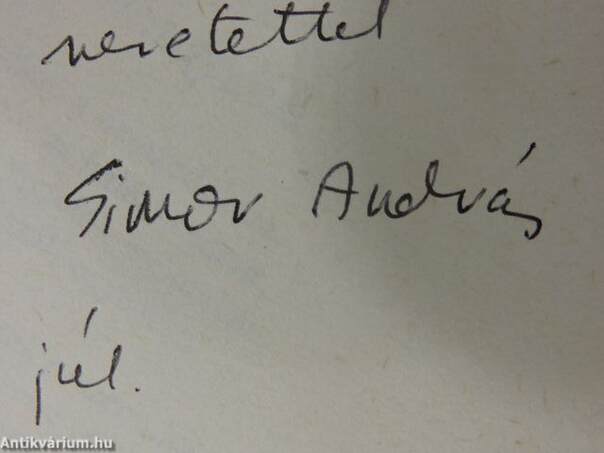 szeretettel
Simor András
júl.
Antikvárium.hu